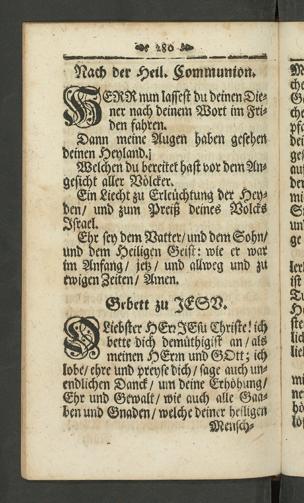 280
Nach der Heil. Communion.
HERR nun lassest du deinen Die-
ner nach deinem Wort im Fri-
den fahren.
Dann meine Augen haben gesehen
deinen Heyland.
Welchen du bereitet hast vor dem An-
gesicht aller Völcker.
Ein Liecht zu Erleüchtung der Hey-
den / und zum Preiß deines Volcks
Israel.
Ehr sey dem Vatter / und dem Sohn /
und dem Heiligen Geist: wie er war
im Anfang / jetz / und allweg und zu
ewigen Zeiten / Amen.
Gebett zu JESV.
O Liebster HErr JEsu Christe! ich
bette dich demüthigist an / als
meinen HErrn und GOtt; ich
lobe / ehre und preyse dich / sage auch un-
endlichen Danck / um deine Erhöhung /
Ehr und Gewalt / wie auch alle Gaa-
ben und Gnaden / welche deiner heiligen
Mensch-